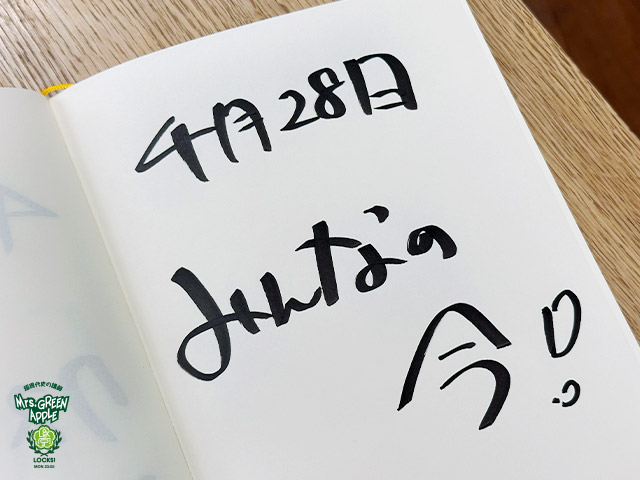 4月28日
みんなの
今!!
Mrs. GREEN
APPLE
LOCKS!